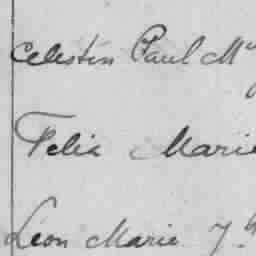 Celestin Paul M
Felix Marie
Léon Marie